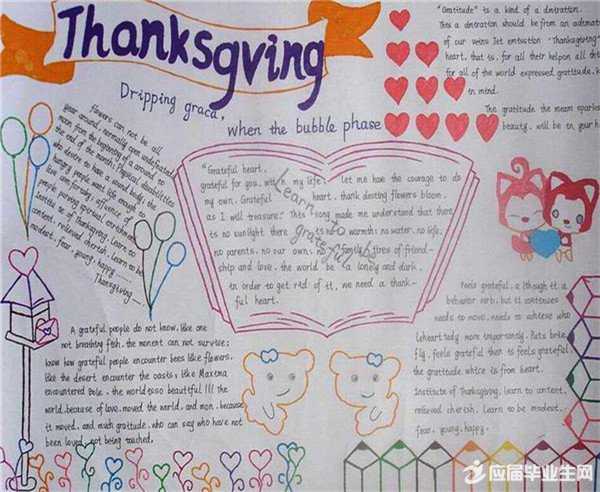 Thanksgving
Dripping graca,
when the bubble phase
"Gratitude" is a kind of a dntration.
This a dntration should be from an
of our veins Jet
heart, that is, for all their helpon all
for all of the world expressed gratitude,
in mind.
The gratitude the mean sparkes
beauty, will be in your h
flowers can not be all
year around, normally open undefeated
moon from the beginning of a around, to
the end of the month; Physical disabilities
who desire to have a sound body; the
hungry people want like enough to
live comfortably; affluence of
people pursing spiritual enrichment
Institute of Thanksgiving, Learn to
content, relieved cherish, Learn to be
modest, fear, young, happy ......
Thanksgiving
"Grateful heart,
grateful for you, with my life,
my own. Grateful
as I will treasure." This song made me understand that there
is no sunlight there is no warmth; no water, no life,
no parents, no our own, no family, fires of friend-
ship and love, the world be a lonely and dark,
in order to get rid of it, we need a thank-
ful heart.
Let me have the courage to do
heart, thank destiny flowers bloom,
Learn to
grateful
A grateful people do not know, like one
not breathing fish, the moment can not survive;
know how grateful people encounter bees like flowers,
like the desert encounter the oasts, like Maxima
encountered Bole. the world isso beautful !!! the
world, because of love, moved the world, and mon, because
it moved, and much gratitude, who can say who have not
been loved, not being touched,
Feels grateful, although it a
behavior verb, but it continues
needs to move, needs to achieve who
Leheart tody more importantly. Puts brie
fly, feels grateful then is feels grateful
the gratitude whtce is from heart.
Institute of Thanksgiving, Learn to content,
relieved cherish, Learn to be modest,
fear, young, happy.
应届毕业生网